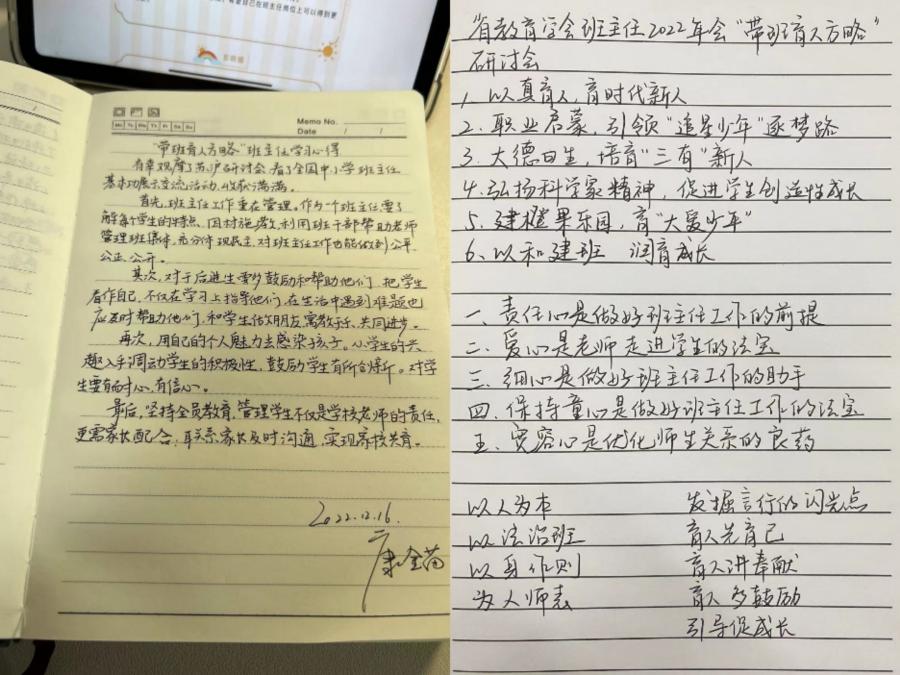 Memo No.
Mo Tu We Th Fr Sa Su
Date / /
“带班育人方略”班主任学习心得
有幸观摩了苏沪研讨会,看了全国中小学班主任
基本功展示交流活动,收获满满。
首先,班主任工作重在管理。作为一个班主任要了
解每个学生的特点,因材施教,利用班干部帮助老师
管理班集体,充分体现民主,对班主任工作也能做到公平
公正、公开。
其次,对于后进生要多鼓励和帮助他们,把学生
看作自己,不仅在学习上指导他们,在生活中遇到难题也
应及时帮助他们,和学生做朋友,寓教于乐,共同进步。
再次,用自己的个人魅力去感染孩子。从学生的兴
趣入手调动学生的积极性,鼓励学生有所创新。对学
生要有耐心,有信心。
最后,坚持全员教育,管理学生不仅是学校老师的责任,
更需家长配合,联系家长及时沟通,实现家校共育。
2022.12.16.
省教育学会班主任2022年会“带班育人方略”
研讨会
1、以真育人,育时代新人
2、职业启蒙,引领“追星少年”逐梦路
3、大德日生,培育“三有”新人
4、弘扬科学家精神,促进学生创造性成长
5、建橙果乐园,育“大爱少年”
6、以和建班 润育成长
一、责任心是做好班主任工作的前提
二、爱心是老师走进学生的法宝
三、细心是做好班主任工作的助手
四、保持童心是做好班主任工作的法宝
五、宽容心是优化师生关系的良药
以人为本 发掘言行的闪光点
以法治班 育人先育己
以身作则 育人讲奉献
为人师表 育人多鼓励
引导促成长